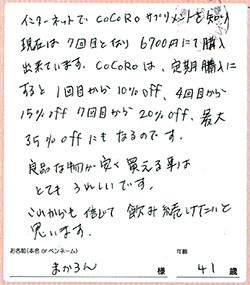 インターネットで COCORO サプリメントを知り
現在は 7回目となり 6700円にて購入
出来ています。COCOROは、定期購入に
すると 1回目から 10%off、4回目から
15%off 7回目から 20%off、最大
35%offにもなるのです。
良品な物が安く買える事は
とても うれしいです。
これからも 信じて 飲み続けたいと
思います。
お名前(本名 or ペンネーム) 年齢
まかろん 様 41 歳